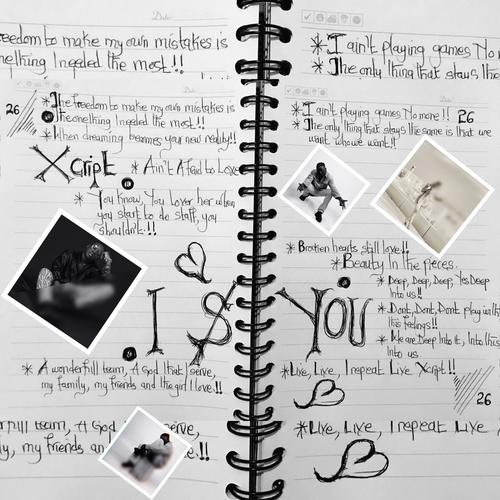 Date
eedom to make my own mistakes is
nething I needed the most!!
26
* The freedom to make my own mistakes is
The onething I needed the most!!
* When dreaming becomes your new reality!!
Xcript * Ain't Afraid to Love
* You know, You Lover her when
you start to do staff, you
shouldn't!!
I $
* A wonderful team, A God that I serve,
my family, my friends and the girl I love!!
erful team, A God serve,
ly, my friends !!
Date
* I ain't playing games No mo
* The only thing that stays the
* I ain't playing games No more!! 26
* The only thing that stays the same is that we
want who we want!!
* Broken hearts still love!!
* Beauty In the pieces.
* Deep, Deep, Deep, Yes Deep
Into us!!
* Dont, Dont, Dont play with
this feelings!!
* We are Deep Into it, Into this
Into us.
YOU
* Live, Live, I repeat Live Xcript!!
26
* Live, Live, I repeat Live